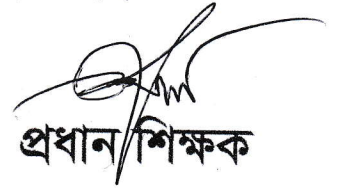 প্রধান শিক্ষক